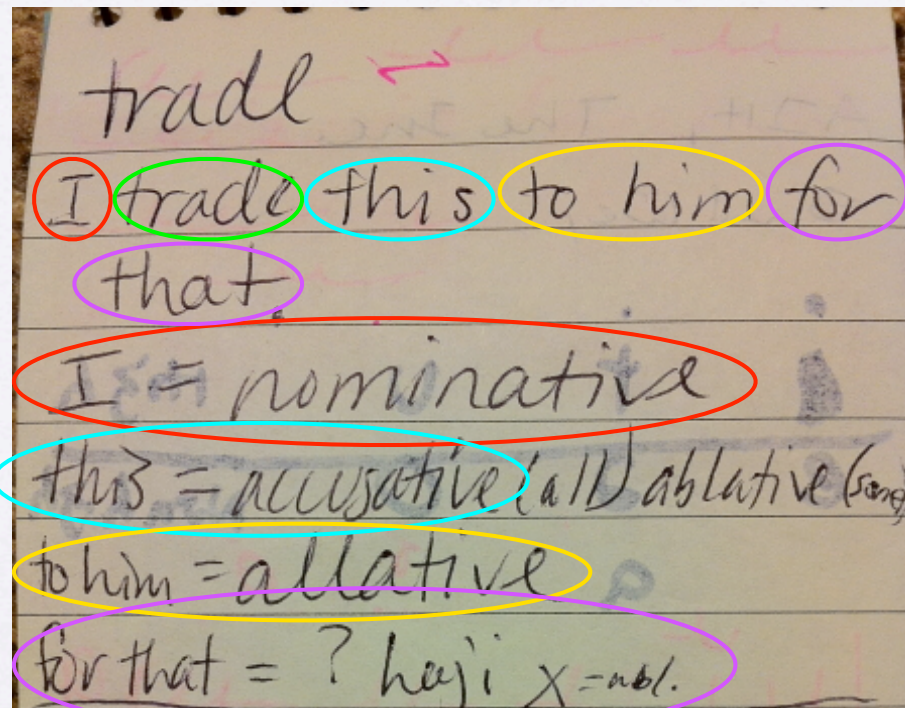 trade ⇌
I trade this to him for
that.
I = nominative
this = accusative (all) ablative (some)
to him = allative
for that = ? haji x = abl.